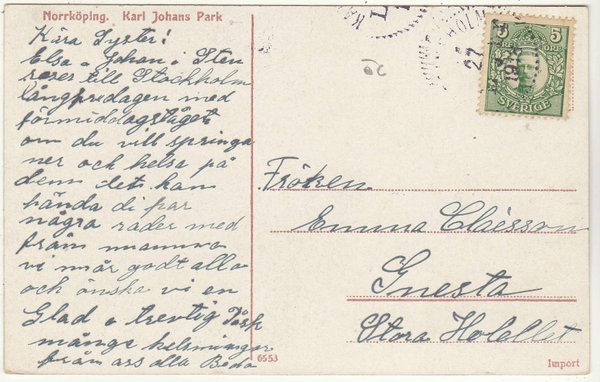 Norrköping. Karl Johans Park
Kära Syster!
Elsa o Johan i Sten
reser till Stockholm
långfredagen med
förmiddagståget
om du vill springa
ner och helsa på
dem det kan
hända di har
några rader med
från mamma
vi mår godt alla
och önska vi en
Glad o trevlig Påsk
många helsningar
från oss alla Beda
6553
5 5
SVERIGE
27
Fröken
Emma Claesson
Gnesta
Stora Hotellet
Import